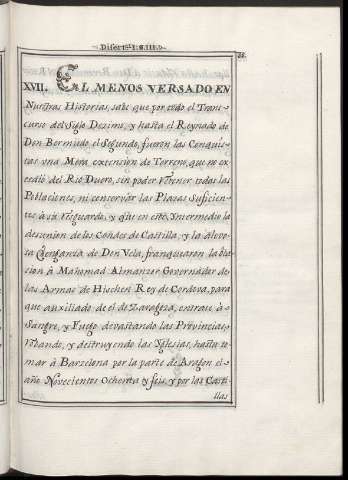 XVII. EL MENOS VERSADO EN
Nuestras Historias, sabe que por todo el Trans-
curso del Siglo Dezimo, y hasta el Reynado de
Don Bermudo el Segundo, fueron las Conquis-
tas una Mera extension de Terreno, que no ex-
cedió del Rio Duero, sin poder obtener todas las
Poblaciones, ni conservar las Plazas Suficien-
tes à su Resguardo, y que en este Ynermedio la
desunion de los Condes de Castilla, y la alevo-
sa Venganza de Don Vela, franquearon la oca-
sion à Mahomad Almanzor Governador de
las Armas de Hischen Rey de Cordova, para
que auxiliado de el de Zaragoza, entrase à
Sangre, y Fuego devastando las Provincias,
robando, y destruyendo las Yglesias, hasta to-
mar à Barzelona por la parte de Aragon el
año Novecientos Ochenta y seis, y por las Casti-
llas